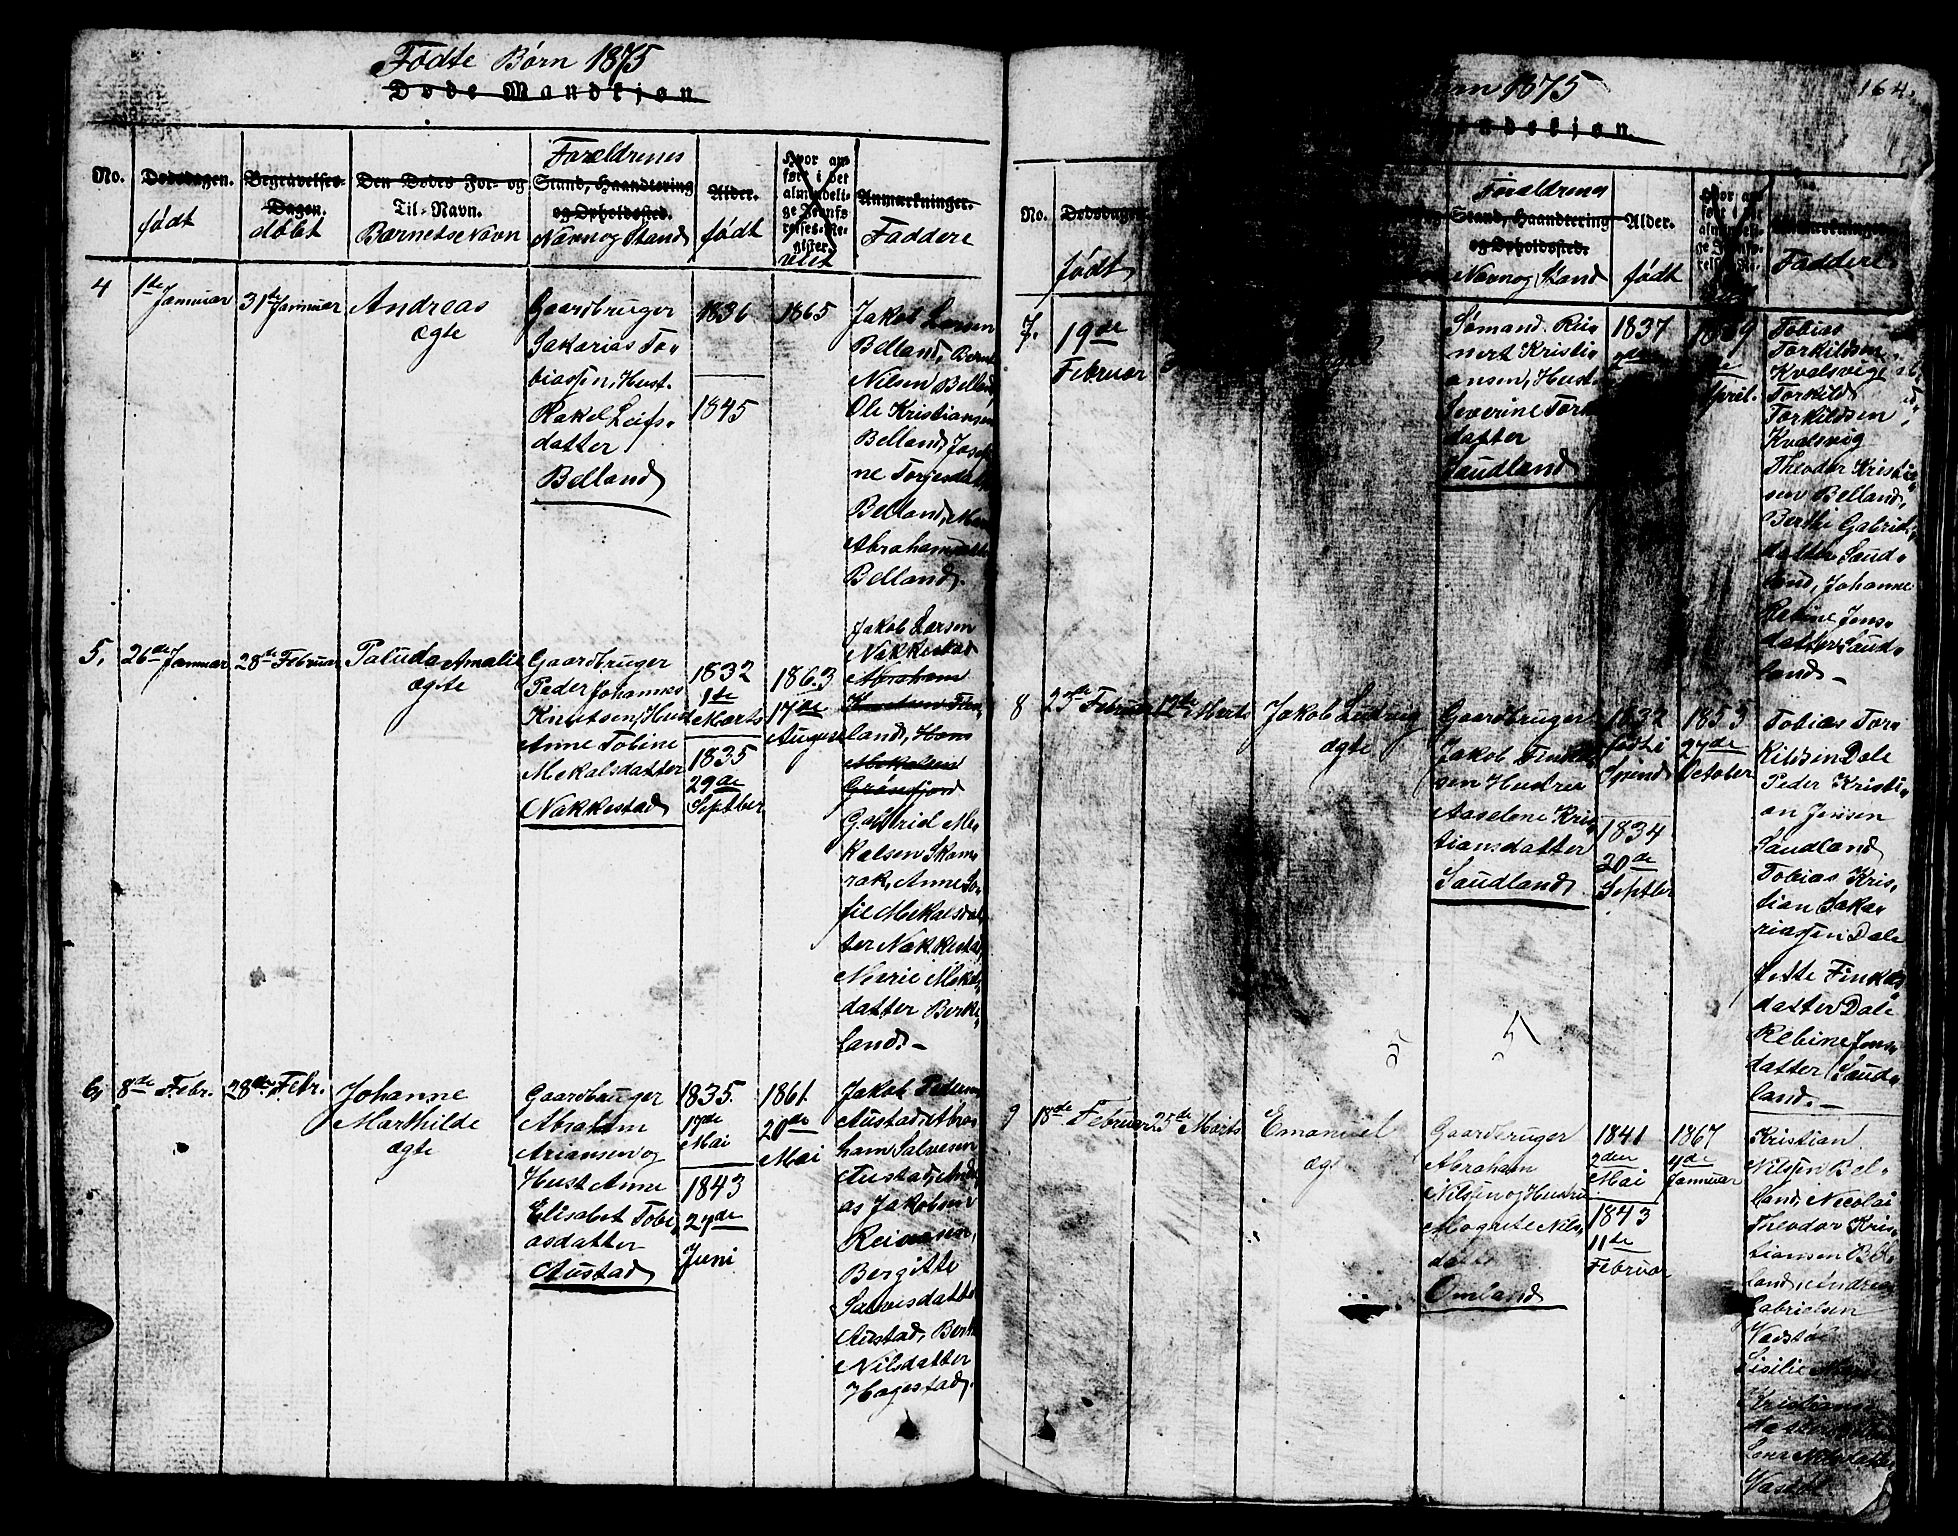 Fødte Børn 1875
Døde Mandkjøn
No.
Dødsdagen.
født
Begravelses-
Dagen.
døbt
Den Dødes For- og
Til-Navn.
Barnets Navn
Forældrenes
Stand, Haandtering
og Opholdssted.
Navn og Stand
Alder.
født
Hvor an-
ført i det
almindeli-
ge Jevnfø-
relses-Re-
gister.
viet
Anmærkninger.
Faddere
4
1de Januar
31te Januar
Andreas
ægte
Gaardbruger
Sakarias To-
biassen, Hust.
Rakel Leifs-
datter
Belland
1836
1845
1865
Jakob Larsen
Belland, Bernt
Nilsen Belland
Ole Kristiansen
Belland, Josefi
ne Torjesdatt
Belland,
Abrahamsdatt
Belland.
5,
26de Januar
28de Februar
Paluda Amalie
ægte
Gaardbruger
Peder Johannes
Knutsen, Hust
Anne Tobine
Mekalsdatter
Nakkestad
1832
1de
Marts
1835
29de
Septber
1863
17de
August
Jakob Larsen
Nakkestad
Abraham
Knutsen
land, Hans
Mekalsen
Grønfjord
Gabriel Me-
kalsen Skam-
rak, Anne So-
fie Mekalsdat
ter Nakkestad,
Marie Mekals
datter Berke-
land. -
6,
8de Febr.
28de Febr.
Johanne
Marthilde
ægte
Gaardbruger
Abraham
Ariansen og
Hust Anne
Elisabet Tobi-
asdatter
Austad
1835.
17de
Mai
1843
27de
Juni
1861.
20de
Mai
Jakob Pedersen
Austad, Abra-
ham Salvesen
Austad, Andre
as Jakobsen
Reiersen,
Bergitte
Salvisdatt
Austad, Berte
Nilsdatter
Hagestad.
Børn 1875
164.
Mandskjøn.
No.
Dødsdagen
født
Forældrenes
Stand, Haandtering
og Opholdssted.
Navn og Stand
Alder.
født
Anmærkninger
Faddere
7.
19de
Februar
Sømand. Rei-
nert Kristi-
ansen, Hust
Severine Tork
datter
Saudland
1837
1869
April.
Tobias
Torkildsen
Kvalsvig
Torkild
Torkildsen
Kvalsvig
Theodor Kristi-
sen Belland,
Berthe Gabriel-
datter Saud-
land, Johanne
Rebine Jens-
datter Saud-
land. -
8
23de Februar
19de Marts
Jakob Ludvig
ægte
Gaardbruger
Jakob Finkel
sen Hustru
Aaselene Kris
tiansdatter
Saudland.
1832
født i
Spind
1834
20de
Septber
1853
27de
October
Tobias Tor-
kildsen Dale
Peder Kristi-
an Jensen
Saudland
Tobias Kris-
tian Saka-
riassen Dale
Finkels
datter Dale
Rebine Jens-
datter Saud-
land. -
9
18de Februar
25de Marts
Emanuel
ægt
Gaardbruger
Abraham
Nilsen og Hustru
Magrete Nils-
datt
Omland
1841
2den
Mai
1843
11te
Februar
1867
4de
Januar
Kristian
Nilsen Bel-
land, Nicolai
Theodor Kris-
tiansen Bel-
land, Andreas
Gabrielsen
Vadstøl
Sisilie
Kristians
datter
Lene Nilsdatter
Vastøl